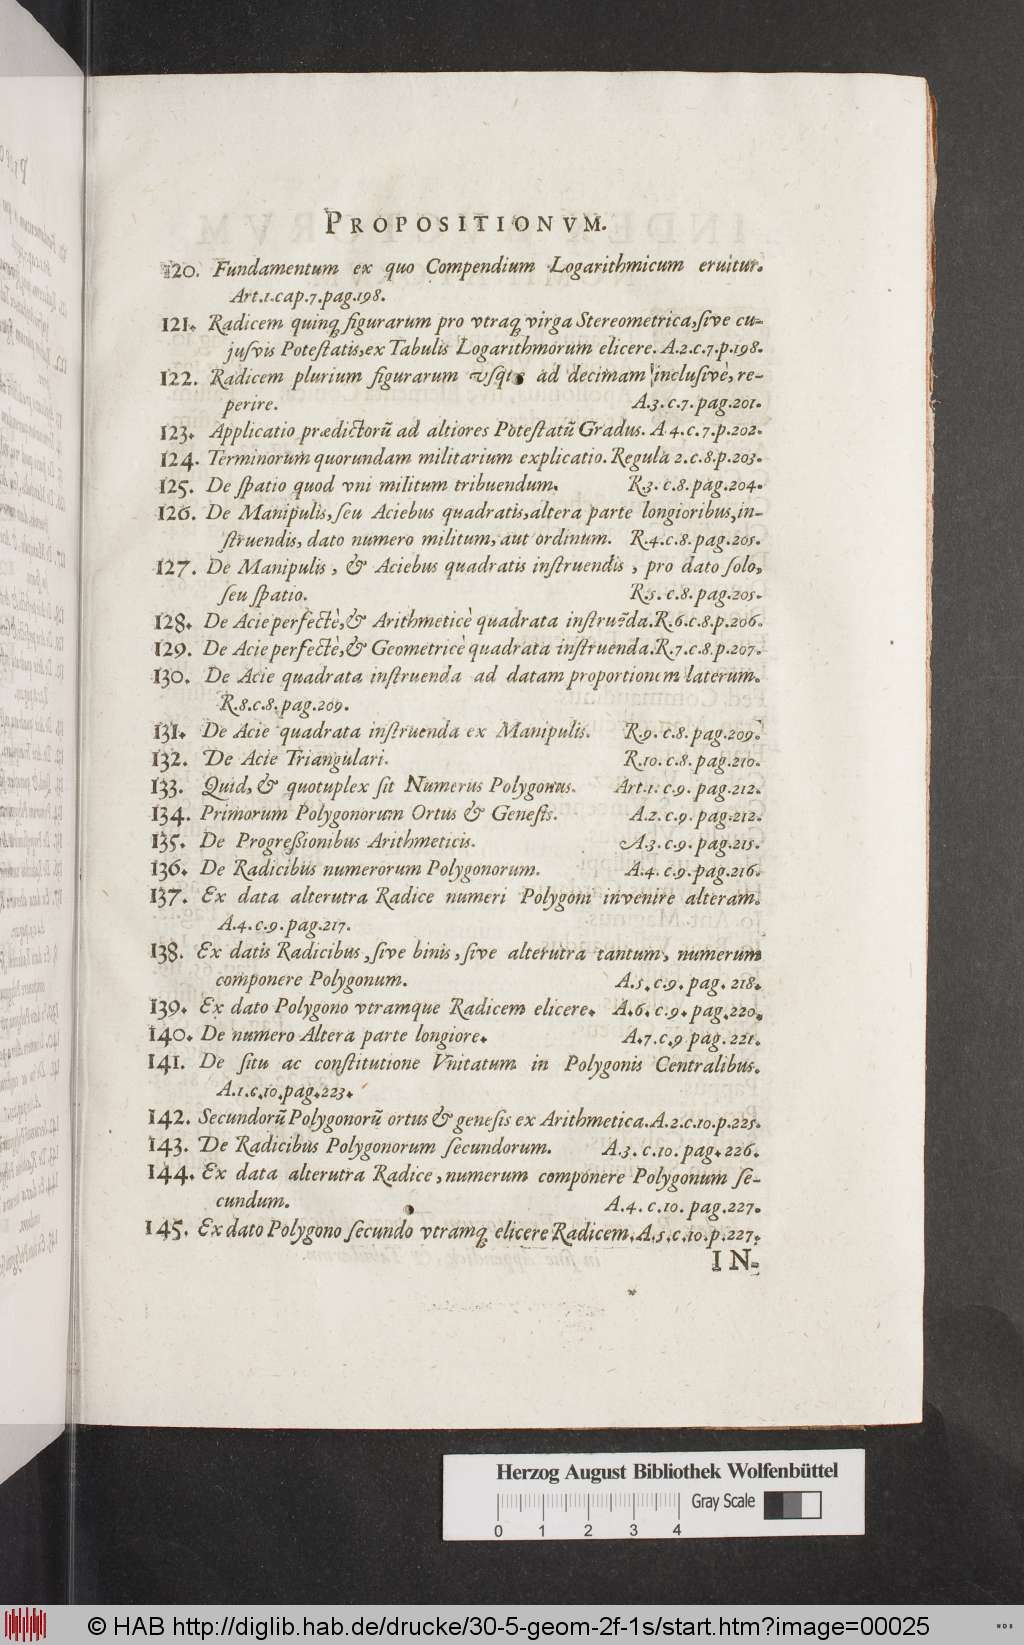 PROPOSITIONVM.
120. Fundamentum ex quo Compendium Logarithmicum eruitur.
Art.1.cap.7.pag.198.
121. Radicem quinq; figurarum pro vtraq; virga Stereometrica, ſive cu-
juſvis Poteſtatis, ex Tabulis Logarithmorum elicere. A.2.c.7.p.198.
122. Radicem plurium figurarum vſque ad decimam incluſivè, re-
perire. A.3.c.7.pag.201.
123. Applicatio prædictorũ ad altiores Poteſtatũ Gradus. A 4.c.7.p.202.
124. Terminorum quorundam militarium explicatio. Regula 2.c.8.p.203.
125. De ſpatio quod vni militum tribuendum. R.3.c.8.pag.204.
126. De Manipulis, ſeu Aciebus quadratis, altera parte longioribus, in-
ſtruendis, dato numero militum, aut ordinum. R.4.c.8.pag.205.
127. De Manipulis, & Aciebus quadratis inſtruendis, pro dato ſolo,
ſeu ſpatio. R.5.c.8.pag.205.
128. De Acie perfectè, & Arithmeticè quadrata inſtruẽda. R.6.c.8.p.206.
129. De Acie perfectè, & Geometricè quadrata inſtruenda. R.7.c.8.p.207.
130. De Acie quadrata inſtruenda ad datam proportionem laterum.
R.8.c.8.pag.209.
131. De Acie quadrata inſtruenda ex Manipulis. R.9.c.8.pag.209.
132. De Acie Triangulari. R.10.c.8.pag.210.
133. Quid, & quotuplex ſit Numerus Polygonus. Art.1.c.9.pag.212.
134. Primorum Polygonorum Ortus & Geneſis. A.2.c.9.pag.212.
135. De Progreſſionibus Arithmeticis. A.3.c.9.pag.215.
136. De Radicibus numerorum Polygonorum. A.4.c.9.pag.216.
137. Ex data alterutra Radice numeri Polygoni invenire alteram.
A.4.c.9.pag.217.
138. Ex datis Radicibus, ſive binis, ſive alterutra tantum, numerum
componere Polygonum. A.5.c.9.pag.218.
139. Ex dato Polygono vtramque Radicem elicere. A.6.c.9.pag.220.
140. De numero Altera parte longiore. A.7.c.9 pag.221.
141. De ſitu ac conſtitutione Vnitatum in Polygonis Centralibus.
A.1.c.10.pag.223.
142. Secundorũ Polygonorũ ortus & geneſis ex Arithmetica. A.2.c.10.p.225.
143. De Radicibus Polygonorum ſecundorum. A.3.c.10.pag.226.
144. Ex data alterutra Radice, numerum componere Polygonum ſe-
cundum. A.4.c.10.pag.227.
145. Ex dato Polygono ſecundo vtramq; elicere Radicem. A.5.c.10.p.227.
IN-
Herzog August Bibliothek Wolfenbüttel
Gray Scale
0 1 2 3 4
© HAB http://diglib.hab.de/drucke/30-5-geom-2f-1s/start.htm?image=00025